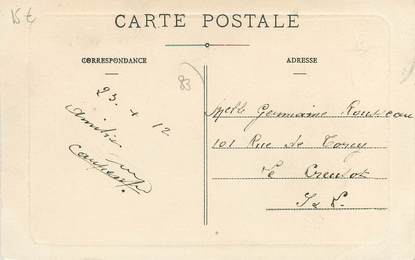 15 €
CARTE POSTALE
CORRESPONDANCE
ADRESSE
83
23. 4 12
Amitié
Melle Germaine Rousseau
101 Rue de Torcy
Le Creusot
S & L.